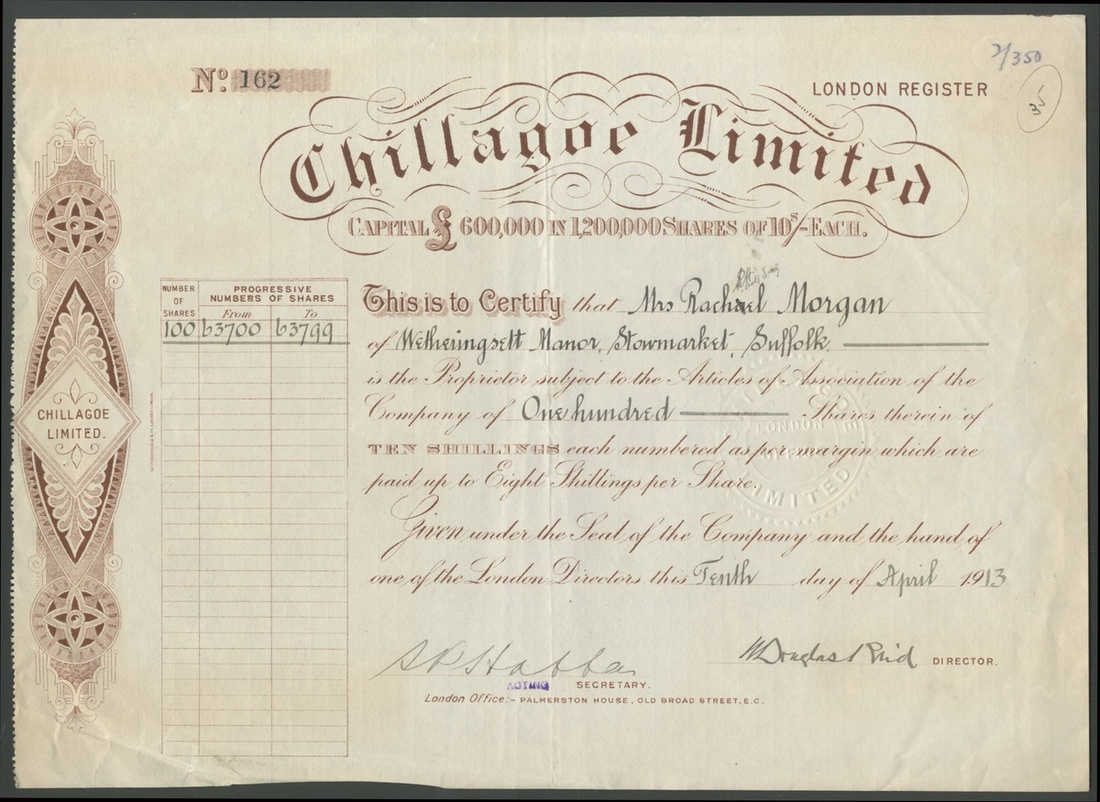 2/350
35
No. 162
LONDON REGISTER
Chillagoe Limited
CAPITAL £600,000 IN 1,200,000 SHARES OF 10s/- EACH.
NUMBER OF SHARES
PROGRESSIVE NUMBERS OF SHARES
From To
100 63700 63799
This is to Certify that Mrs Rachael Morgan
of Wetheringsett Manor, Stowmarket, Suffolk
is the Proprietor subject to the Articles of Association of the
Company of One hundred Shares therein of
TEN SHILLINGS each numbered as per margin which are
paid up to Eight Shillings per Share.
Given under the Seal of the Company and the hand of
one of the London Directors this Tenth day of April 1913
CHILLAGOE
LIMITED.
LONDON
LIMITED
W Douglas Reid DIRECTOR.
ACTING SECRETARY.
London Office:- PALMERSTON HOUSE, OLD BROAD STREET, E.C.